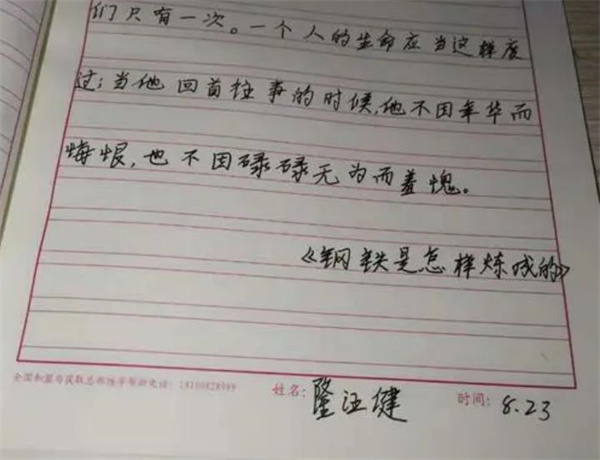 们只有一次。一个人的生命应当这样度
过；当他回首往事的时候，他不因年华而
悔恨，也不因碌碌无为而羞愧。
《钢铁是怎样炼成的》
全国加盟与获取总部练字帮助电话：18160828989
姓名：隆证健 时间：8.23